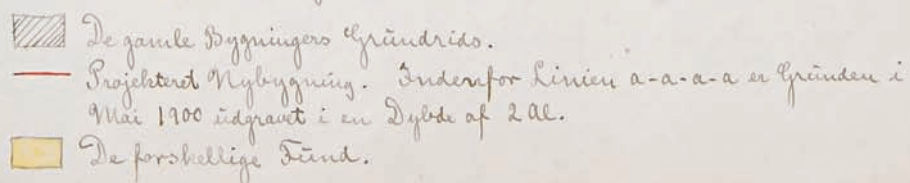 De gamle Bygningers Grundrids.
Projekteret Nybygning. Indenfor Linien a-a-a-a er Grunden i
Mai 1900 udgravet i en Dybde af 2 Al.
De forskellige Fund.